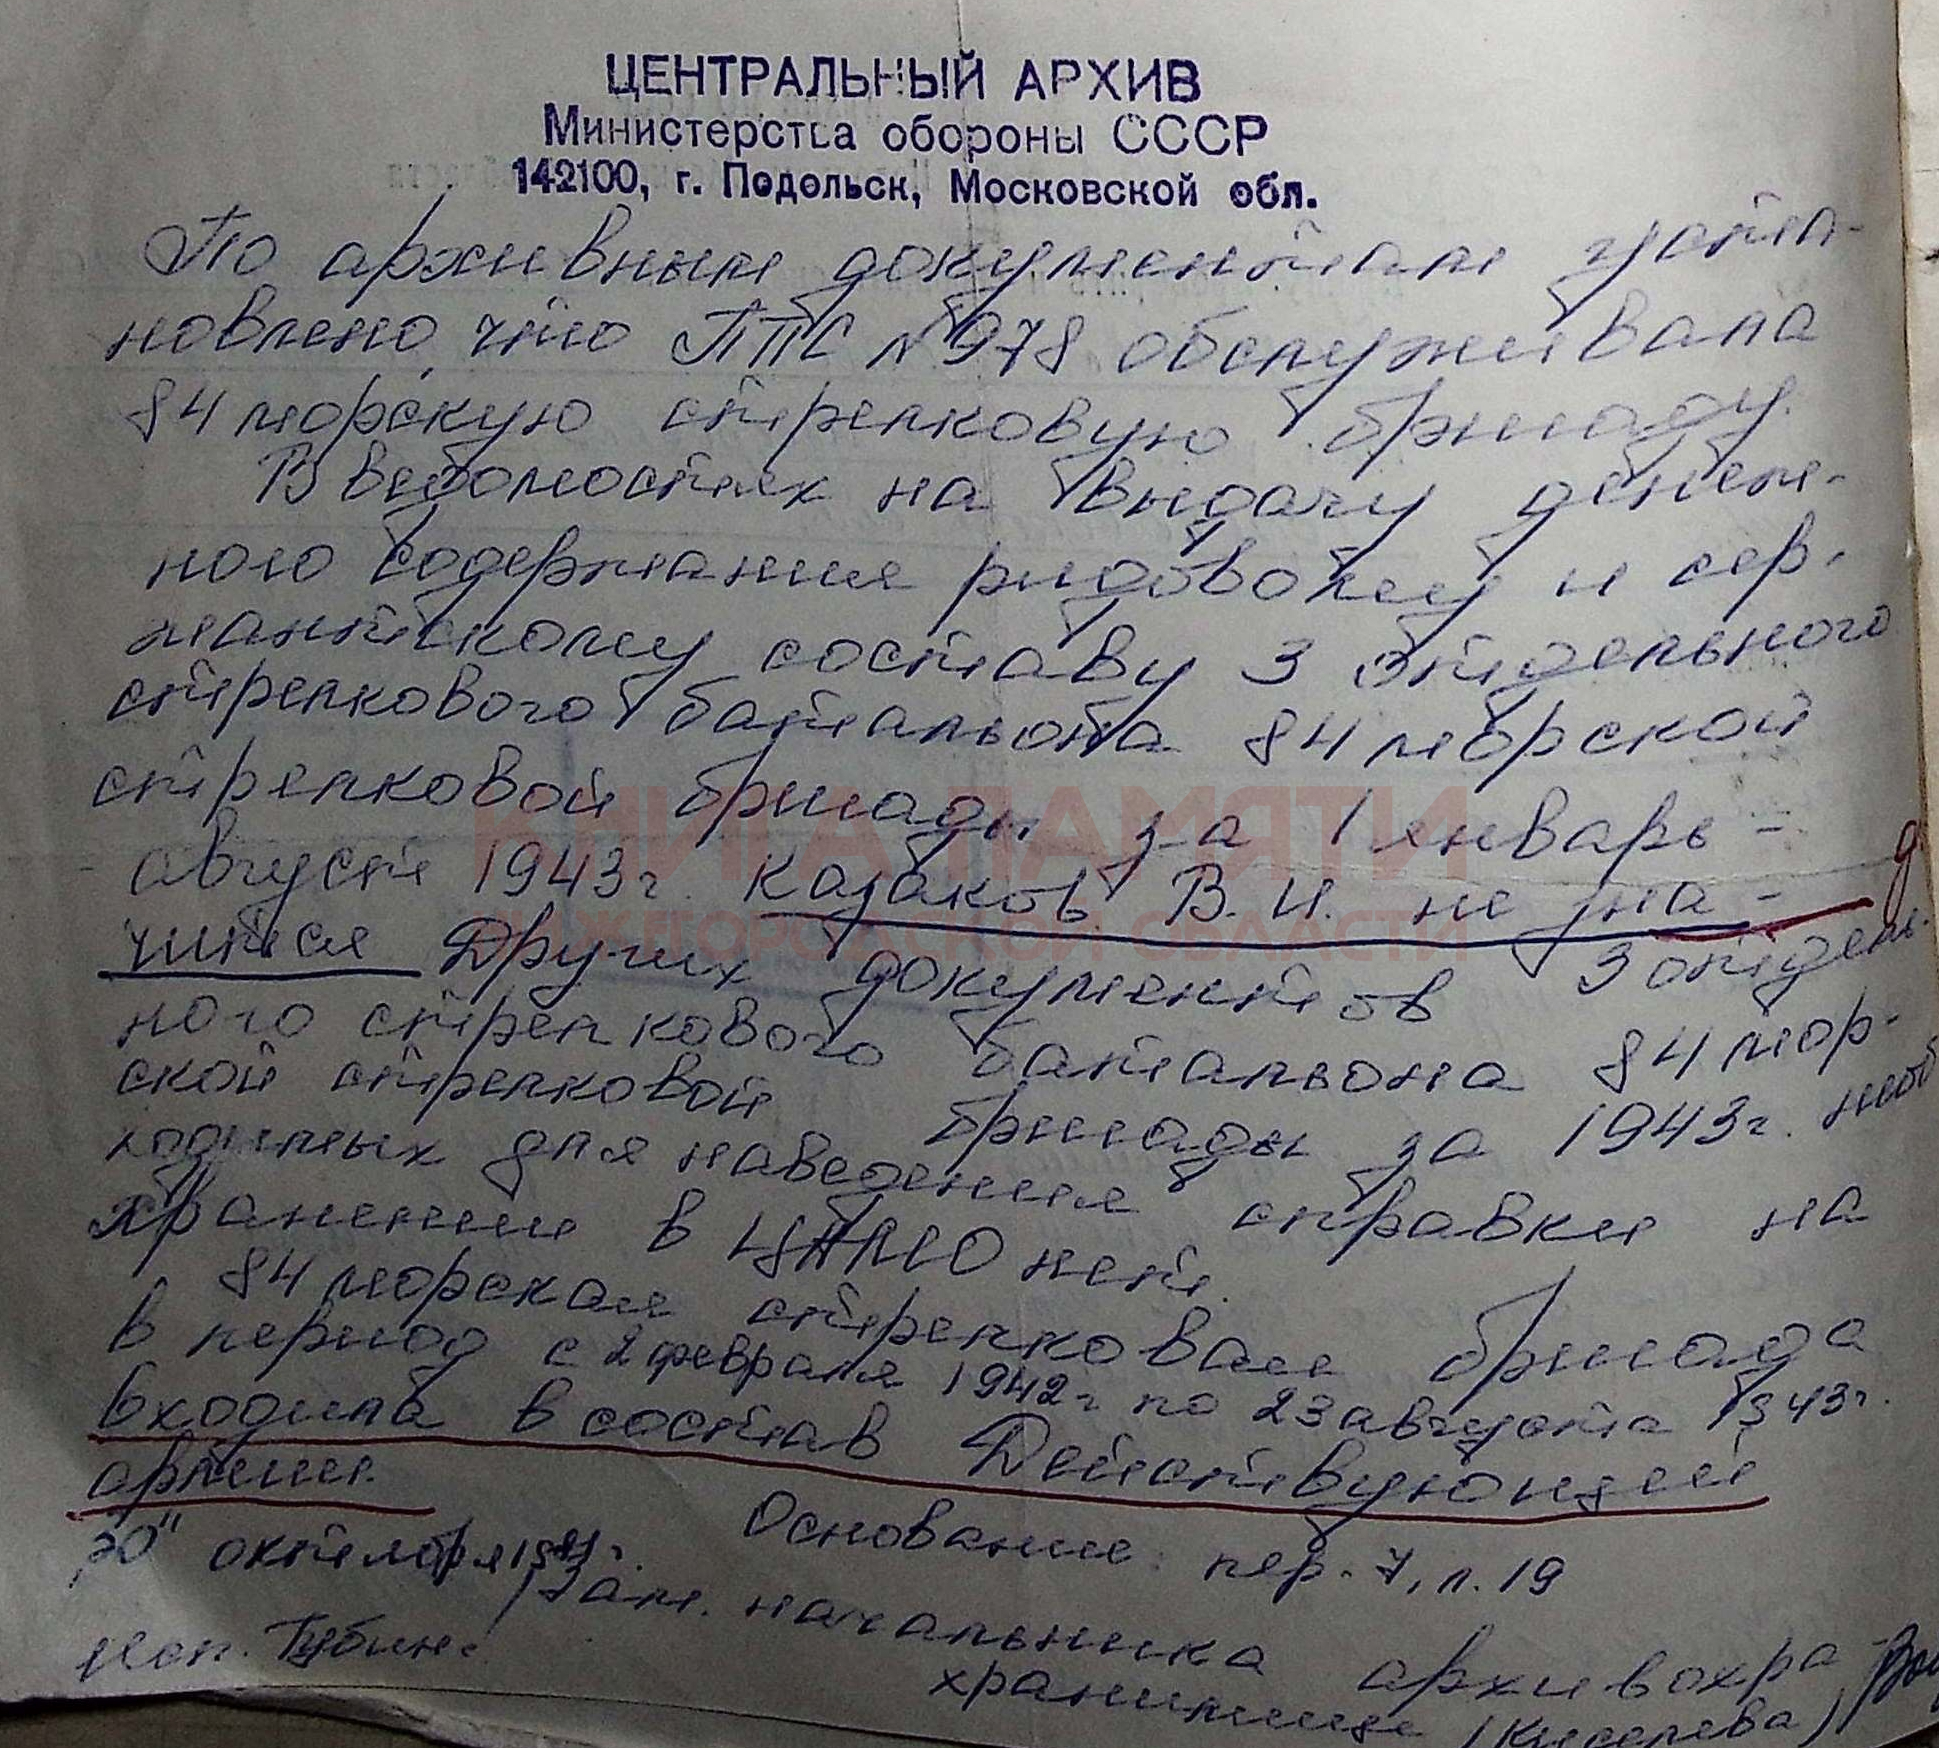 ЦЕНТРАЛЬНЫЙ АРХИВ
Министерства обороны СССР
142100, г. Подольск, Московской обл.
По архивным документам уста-
новлено, что ППС №978 обслуживала
84 морскую стрелковую бригаду.
В ведомостях на выдачу денеж-
ного содержания рядовому и сер-
жантскому составу 3 отдельного
стрелкового батальона 84 морской
стрелковой бригады за январь -
август 1943г. Казаков В. И. не зна-
чится Других документов 3 отдель-
ного стрелкового батальона 84 мор-
ской стрелковой бригады за 1943г. необ
ходимых для наведения справки на
хранении в ЦАМО нет.
84 морская стрелковая бригада
в период с 2 февраля 1942г по 23 августа 1943г.
входила в состав Действующей
армии.
Основание: пер. 7, л. 19
"30" октября
Зам. начальника архивохра
хранилища (Киселева)
Исп. Губин
КНИГА ПАМЯТИ
НИЖЕГОРОДСКОЙ ОБЛАСТИ